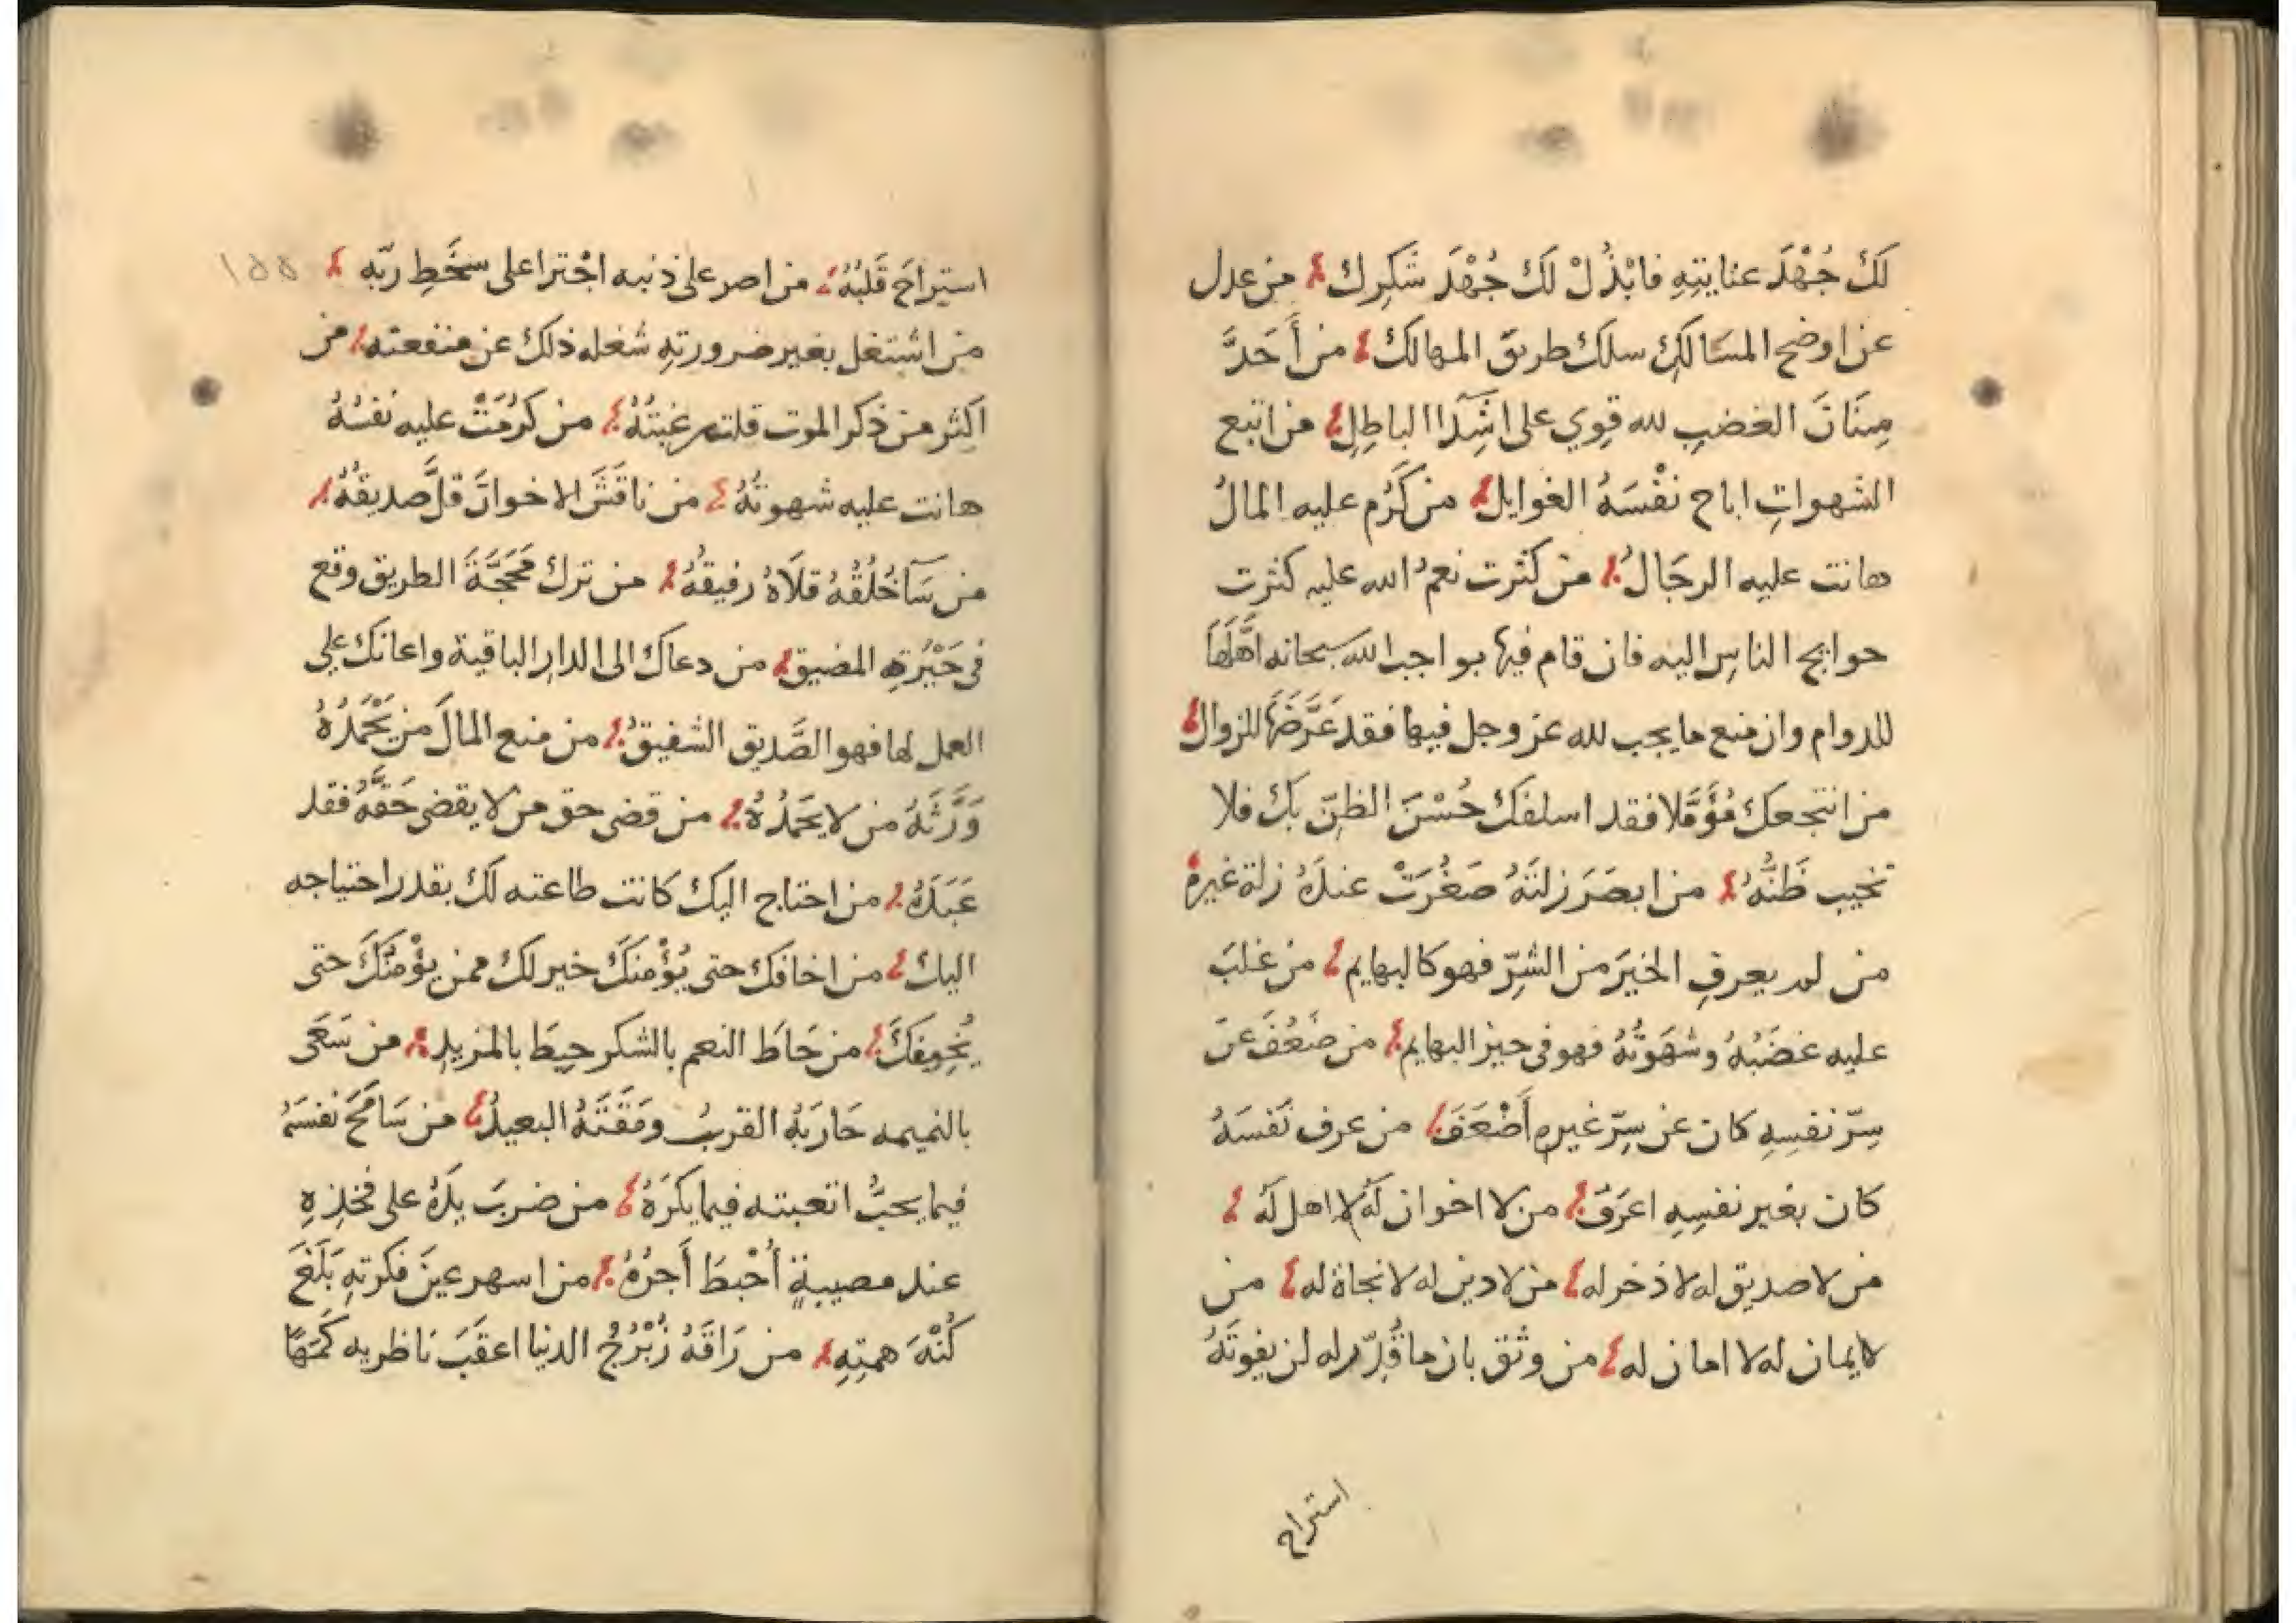 لَكَ جُهْدَ عنايتِهِ فابْذُلْ لَكَ جُهْدَ شَكِرِك من عدل
عن اوضح المسَالكِ سلك طريق المهالك من أَحَدَّ
سِنَانَ الغضبِ لله قوي على اشِدّآ الباطِلِ من اتبع
الشهواتِ اباح نفْسَهُ الغوايل من كَرُم عليه المالُ
هانت عليه الرجَالُ من كثرت نعمُ الله عليه كثرت
حوايج الناسِ اليه فان قام فيها بواجب الله سبحانه اهَّلَهَا
للدوام وان منع ما يجب لله عز وجل فيها فقد عَرَّضَهَا للزوال
من انتجعك مُؤَمِّلا فقد اسلفك حُسْنَ الظنّ بك فلا
تخيب ظَنَّهُ من ابصَرَ زلتَهُ صَغُرَتْ عندَهُ زلة غيرهُ
من لم يعرفِ الخيرَ من الشرِّ فهو كالبهايم من غلبَ
عليه غضَبُهُ وشهَوتُهُ فهو فى حيز البهايم من ضَعُفَ عن
سِرّ نفسِهِ كان عن سِرّ غيرهِ أَضْعَفَ من عرف نَفسَهُ
كان بغير نفسِهِ اعرَفُ من لا اخوان لَهُ لا اهل لَهُ
من لا صديق له لا ذخر له من لا دين له لا نجاة له من
لا ايمان له لا امان له من وثق بان ما قُدِّر له لن يفوتَهُ
استراح
استراحَ قَلبُهُ من اصر على ذنبه اجْترا على سخَطِ ربّه ١٥٥
من اشتغل بغير ضرورتهِ شغله ذلك عن منفعته من
اكثر من ذكر الموت قلت رغبتُهُ من كرُمَتْ عليه نفسُهُ
هانت عليه شهوتُهُ من ناقَشَ الاخوانَ قلَّ صديقُهُ
من سَآ خُلُقُهُ قلَاهُ رفيقُهُ من ترك مَحَجَّةَ الطريق وقع
فى حَيْرَةِ المضيق من دعاك الى الدار الباقية واعانك على
العمل لها فهو الصَّديق الشفيقُ من منع المالَ من يَحْمَدُهُ
وَرَّثَهُ من لا يحَمَدُهُ من قضى حق من لا يقضى حَقَّهُ فقد
عَبَدَهُ من احتاج اليك كانت طاعته لَكَ بقدر احتياجه
اليك من اخافك حتى يُؤْمنكَ خير لك ممن يؤْمنُكَ حتى
يُخِيفَكَ من حَاطَ النعم بالشكر حِيطَ بالمزيدِ من سَعَى
بالنميمه حَارَبَهُ القربُ ومَقَتَهُ البعيدُ من سَامَحَ نفسَهُ
فيما يحبُّ اتعبته فيما يكرَهُ من ضربَ يدَهُ على فخذِهِ
عند مصيبةٍ أُحْبطَ أَجرُهُ من اسهر عينَ فكرتهِ بَلَغَ
كُنْهَ همتِهِ من رَاقَهُ زُبْرُجُ الدنيا اعقَبَ ناظريه كَمَهًا